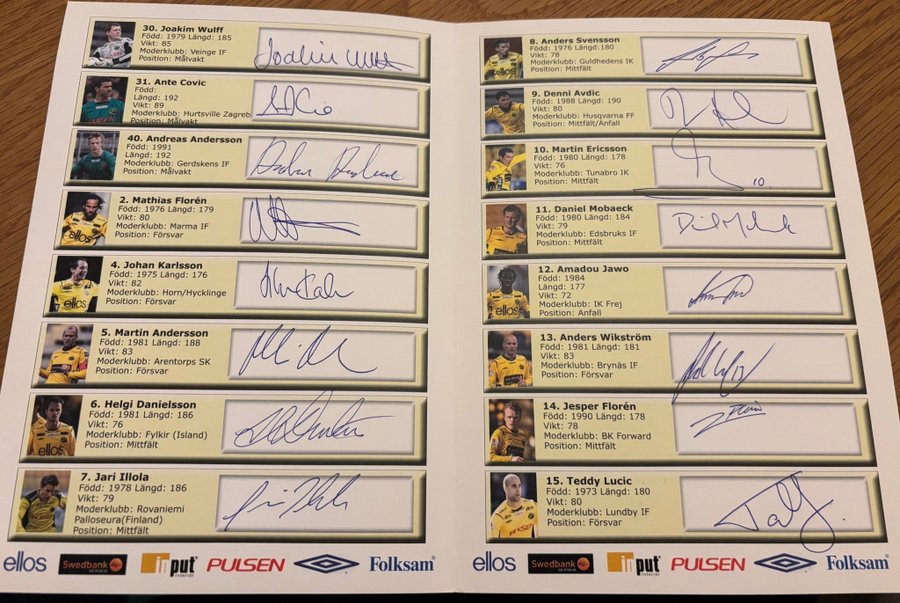 30. Joakim Wulff
Född: 1979 Längd: 185
Vikt: 85
Moderklubb: Veinge IF
Position: Målvakt
Joakim Wulff
31. Ante Covic
Född:
Längd: 192
Vikt: 89
Moderklubb: Hurtsville Zagreb
Position: Målvakt
40. Andreas Andersson
Född: 1991
Längd: 192
Moderklubb: Gerdskens IF
Position: Målvakt
2. Mathias Florén
Född: 1976 Längd: 179
Vikt: 80
Moderklubb: Marma IF
Position: Försvar
ellos
4. Johan Karlsson
Född: 1975 Längd: 176
Vikt: 82
Moderklubb: Horn/Hycklinge
Position: Försvar
ellos
5. Martin Andersson
Född: 1981 Längd: 188
Vikt: 83
Moderklubb: Arentorps SK
Position: Försvar
6. Helgi Danielsson
Född: 1981 Längd: 186
Vikt: 76
Moderklubb: Fylkir (Island)
Position: Mittfält
7. Jari Illola
Född: 1978 Längd: 186
Vikt: 79
Moderklubb: Rovaniemi
Palloseura(Finland)
Position: Mittfält
ellos
Swedbank
input
interiör
PULSEN
Folksam
8. Anders Svensson
Född: 1976 Längd:180
Vikt: 78
Moderklubb: Guldhedens IK
Position: Mittfält
ellos
9. Denni Avdic
Född: 1988 Längd: 190
Vikt: 80
Moderklubb: Husqvarna FF
Position: Mittfält/Anfall
10. Martin Ericsson
Född: 1980 Längd: 178
Vikt: 76
Moderklubb: Tunabro IK
Position: Mittfält
10.
11. Daniel Mobaeck
Född: 1980 Längd: 184
Vikt: 79
Moderklubb: Edsbruks IF
Position: Mittfält
12. Amadou Jawo
Född: 1984
Längd: 177
Vikt: 72
Moderklubb: IK Frej
Position: Anfall
ellos
13. Anders Wikström
Född: 1981 Längd: 181
Vikt: 83
Moderklubb: Brynäs IF
Position: Försvar
13
14. Jesper Florén
Född: 1990 Längd: 178
Vikt: 78
Moderklubb: BK Forward
Position: Mittfält
15. Teddy Lucic
Född: 1973 Längd: 180
Vikt: 80
Moderklubb: Lundby IF
Position: Försvar
ellos
ellos
Swedbank
input
interiör
PULSEN
Folksam